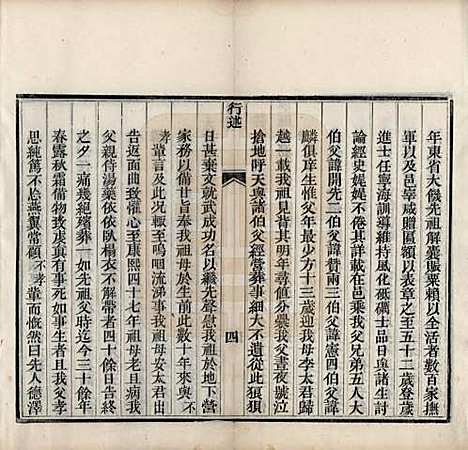 年東省大饑先祖解囊賑粟賴以全者數百家撫
軍以及邑宰咸贈匾額以表章之至五十二歲登歲
進士任寧海訓導維持風化砥礪士品日與諸生討
論經史娓娓不倦其詳在邑乘我父兄弟五人大
伯父諱開先二伯父諱贊兩三伯父諱憲四伯父諱
麟俱庠生惟父年最少方十三歲迎我祖母李太君歸
越一載我祖見背其明年尋值分爨我父晝夜號泣
搶地呼天與諸伯父經營葬事細大不遺從此狼狽
日甚棄文就武成功名以繼先聲慰我祖於地下營
家務以備甘旨奉我祖母於生前此數十年來與不
孝輩言及此況輒嗚咽流涕事我祖母安太君出
告返面曲致歡心至康熙四十七年祖母老且病我
父親侍湯藥依依臥榻衣不解帶者四十餘日告終
之夕一痛幾絕殯葬一如先祖父時迄今三十餘年
春露秋霜備物致虔真有事死如事生者且我父孝
思純篤不忝燕翼常顧不孝輩而慨然曰先人德澤
行述
四